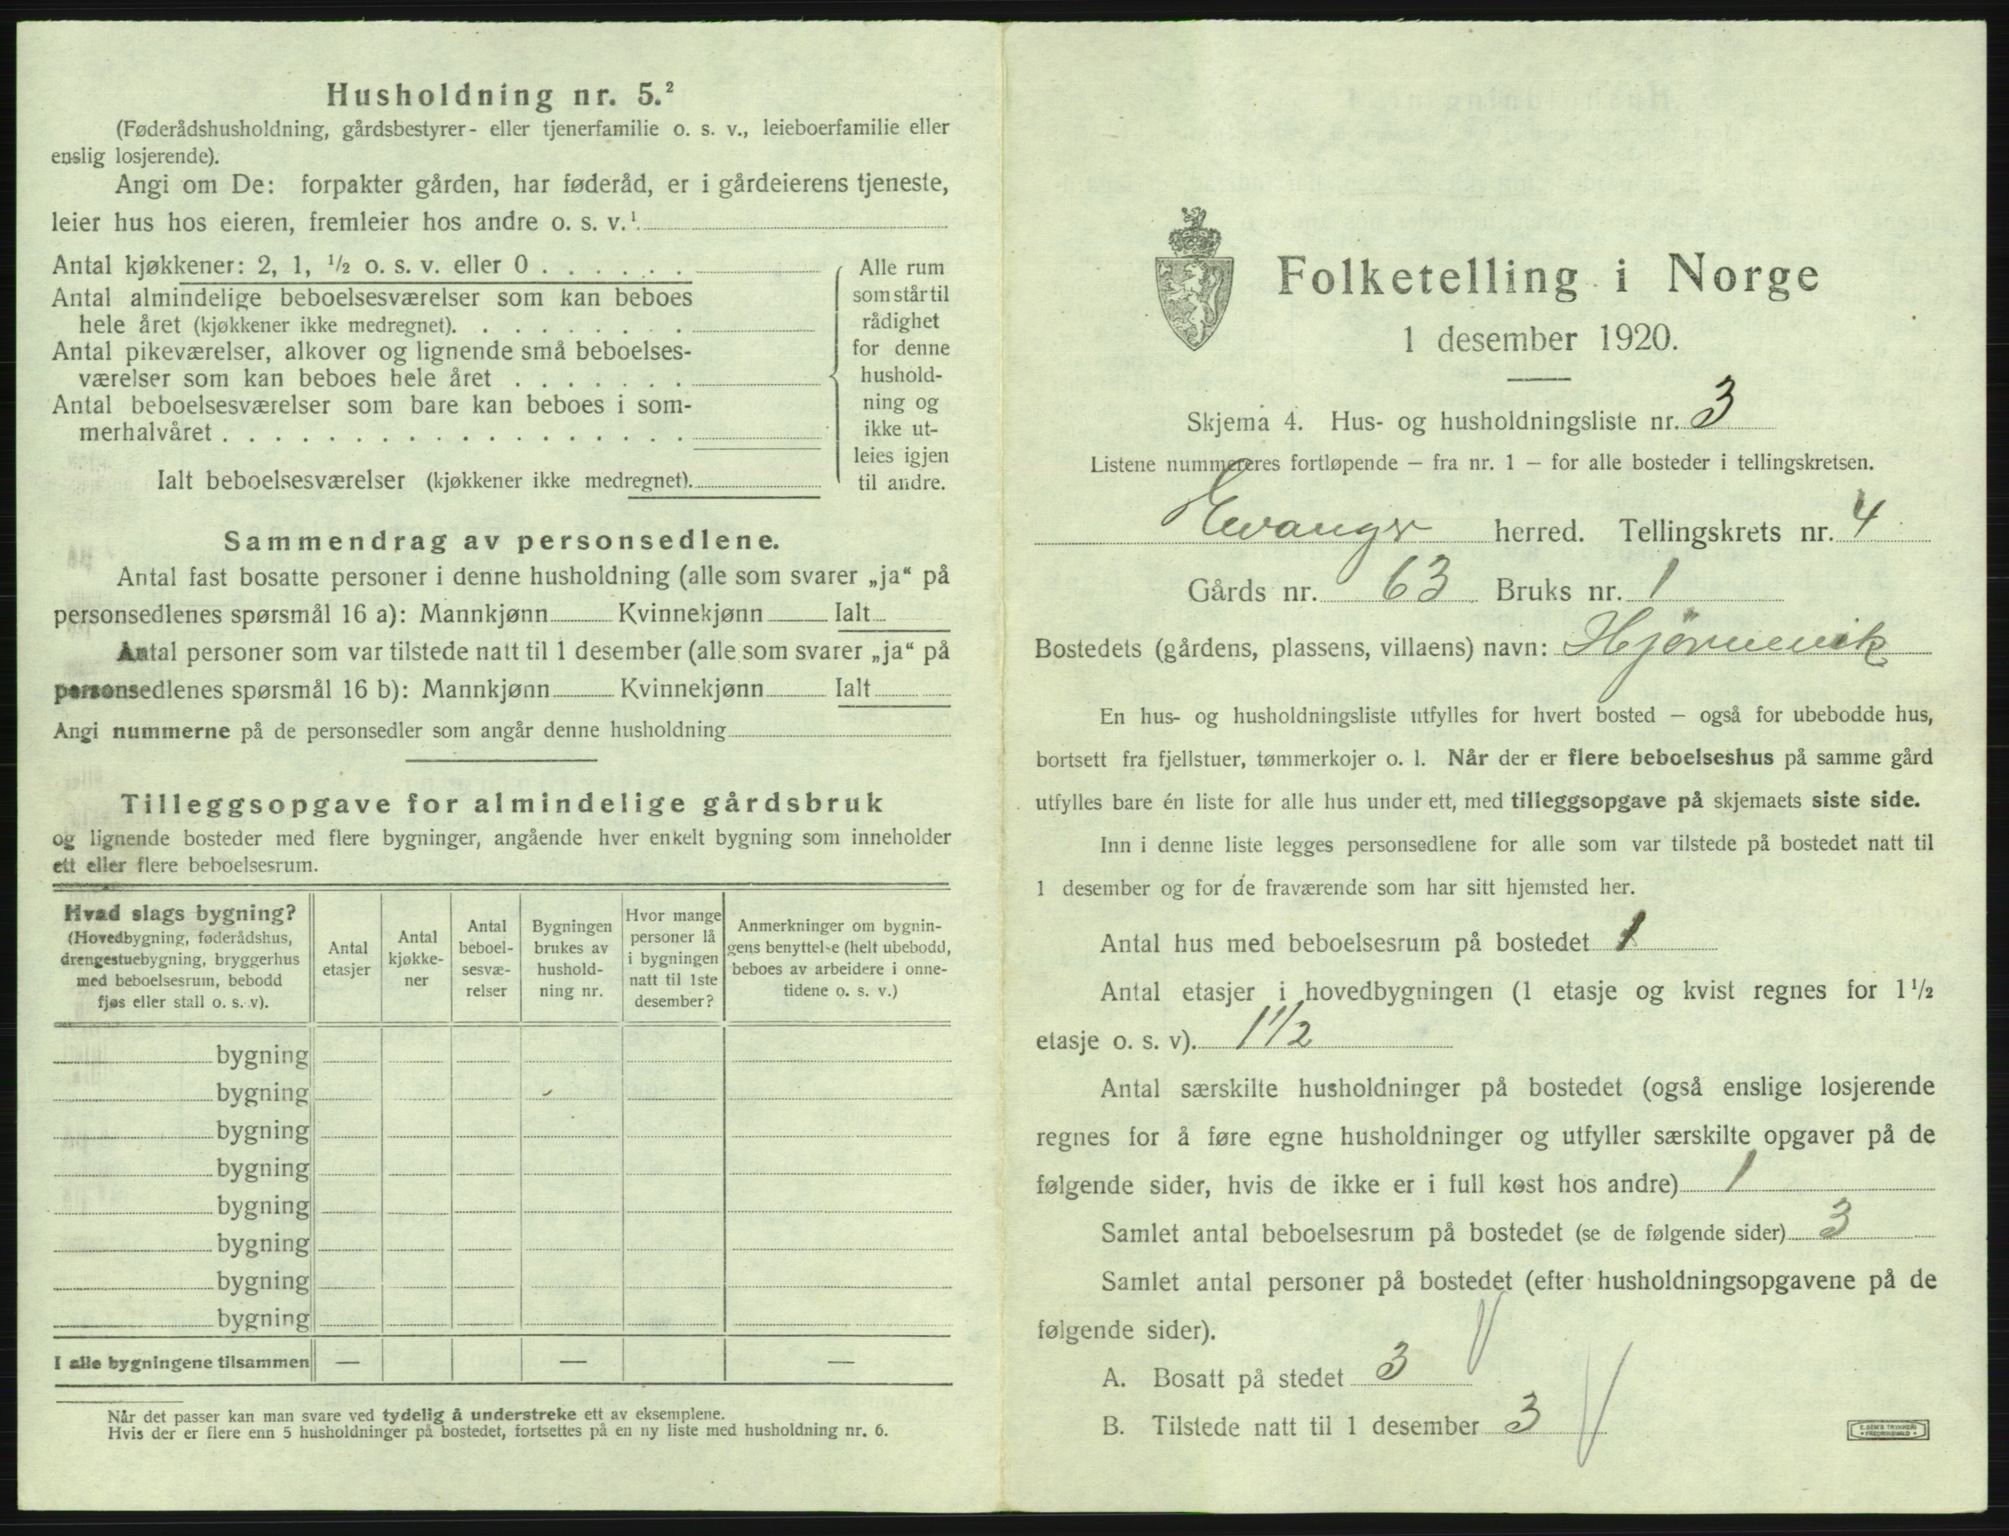 Husholdning nr. 5.²
(Føderådshusholdning, gårdsbestyrer- eller tjenerfamilie o. s. v., leieboerfamilie eller
enslig losjerende).
Angi om De: forpakter gården, har føderåd, er i gårdeierens tjeneste,
leier hus hos eieren, fremleier hos andre o. s. v.¹
Antal kjøkkener: 2, 1, ¹/₂ o. s. v. eller 0
Antal almindelige beboelsesværelser som kan beboes
hele året (kjøkkener ikke medregnet).
Antal pikeværelser, alkover og lignende små beboelses-
værelser som kan beboes hele året
Antal beboelsesværelser som bare kan beboes i som-
merhalvåret
Ialt beboelsesværelser (kjøkkener ikke medregnet).
Alle rum
som står til
rådighet
for denne
hushold-
ning og
ikke ut-
leies igjen
til andre.
Sammendrag av personsedlene.
Antal fast bosatte personer i denne husholdning (alle som svarer „ja“ på
personsedlenes spørsmål 16 a): Mannkjønn Kvinnekjønn Ialt
Antal personer som var tilstede natt til 1 desember (alle som svarer „ja“ på
personsedlenes spørsmål 16 b): Mannkjønn Kvinnekjønn Ialt
Angi nummerne på de personsedler som angår denne husholdning
Tilleggsopgave for almindelige gårdsbruk
og lignende bosteder med flere bygninger, angående hver enkelt bygning som inneholder
ett eller flere beboelsesrum.
Hvad slags bygning?
(Hovedbygning, føderådshus,
drengestuebygning, bryggerhus
med beboelsesrum, bebodd
fjøs eller stall o. s. v).
Antal
etasjer
Antal
kjøkke-
ner
Antal
beboel-
sesvæ-
relser
Bygningen
brukes av
hushold-
ning nr.
Hvor mange
personer lå
i bygningen
natt til 1ste
desember?
Anmerkninger om bygnin-
gens benyttelse (helt ubebodd,
beboes av arbeidere i onne-
tidene o. s. v.)
bygning
bygning
bygning
bygning
bygning
bygning
bygning
bygning
I alle bygningene tilsammen — — —
Når det passer kan man svare ved tydelig å understreke ett av eksemplene.
Hvis der er flere enn 5 husholdninger på bostedet, fortsettes på en ny liste med husholdning nr. 6.
Folketelling i Norge
1 desember 1920.
Skjema 4. Hus- og husholdningsliste nr. 3
Listene nummereres fortløpende — fra nr. 1 — for alle bosteder i tellingskretsen.
Evanger herred. Tellingskrets nr. 4
Gårds nr. 63 Bruks nr. 1
Bostedets (gårdens, plassens, villaens) navn: Hjørnevik
En hus- og husholdningsliste utfylles for hvert bosted — også for ubebodde hus,
bortsett fra fjellstuer, tømmerkojer o. l. Når der er flere beboelseshus på samme gård
utfylles bare én liste for alle hus under ett, med tilleggsopgave på skjemaets siste side.
Inn i denne liste legges personsedlene for alle som var tilstede på bostedet natt til
1 desember og for de fraværende som har sitt hjemsted her.
Antal hus med beboelsesrum på bostedet 1
Antal etasjer i hovedbygningen (1 etasje og kvist regnes for 1¹/₂
etasje o. s. v). 1 1/2
Antal særskilte husholdninger på bostedet (også enslige losjerende
regnes for å føre egne husholdninger og utfyller særskilte opgaver på de
følgende sider, hvis de ikke er i full kost hos andre) 1
Samlet antal beboelsesrum på bostedet (se de følgende sider) 3
Samlet antal personer på bostedet (efter husholdningsopgavene på de
følgende sider).
A. Bosatt på stedet 3
B. Tilstede natt til 1 desember 3